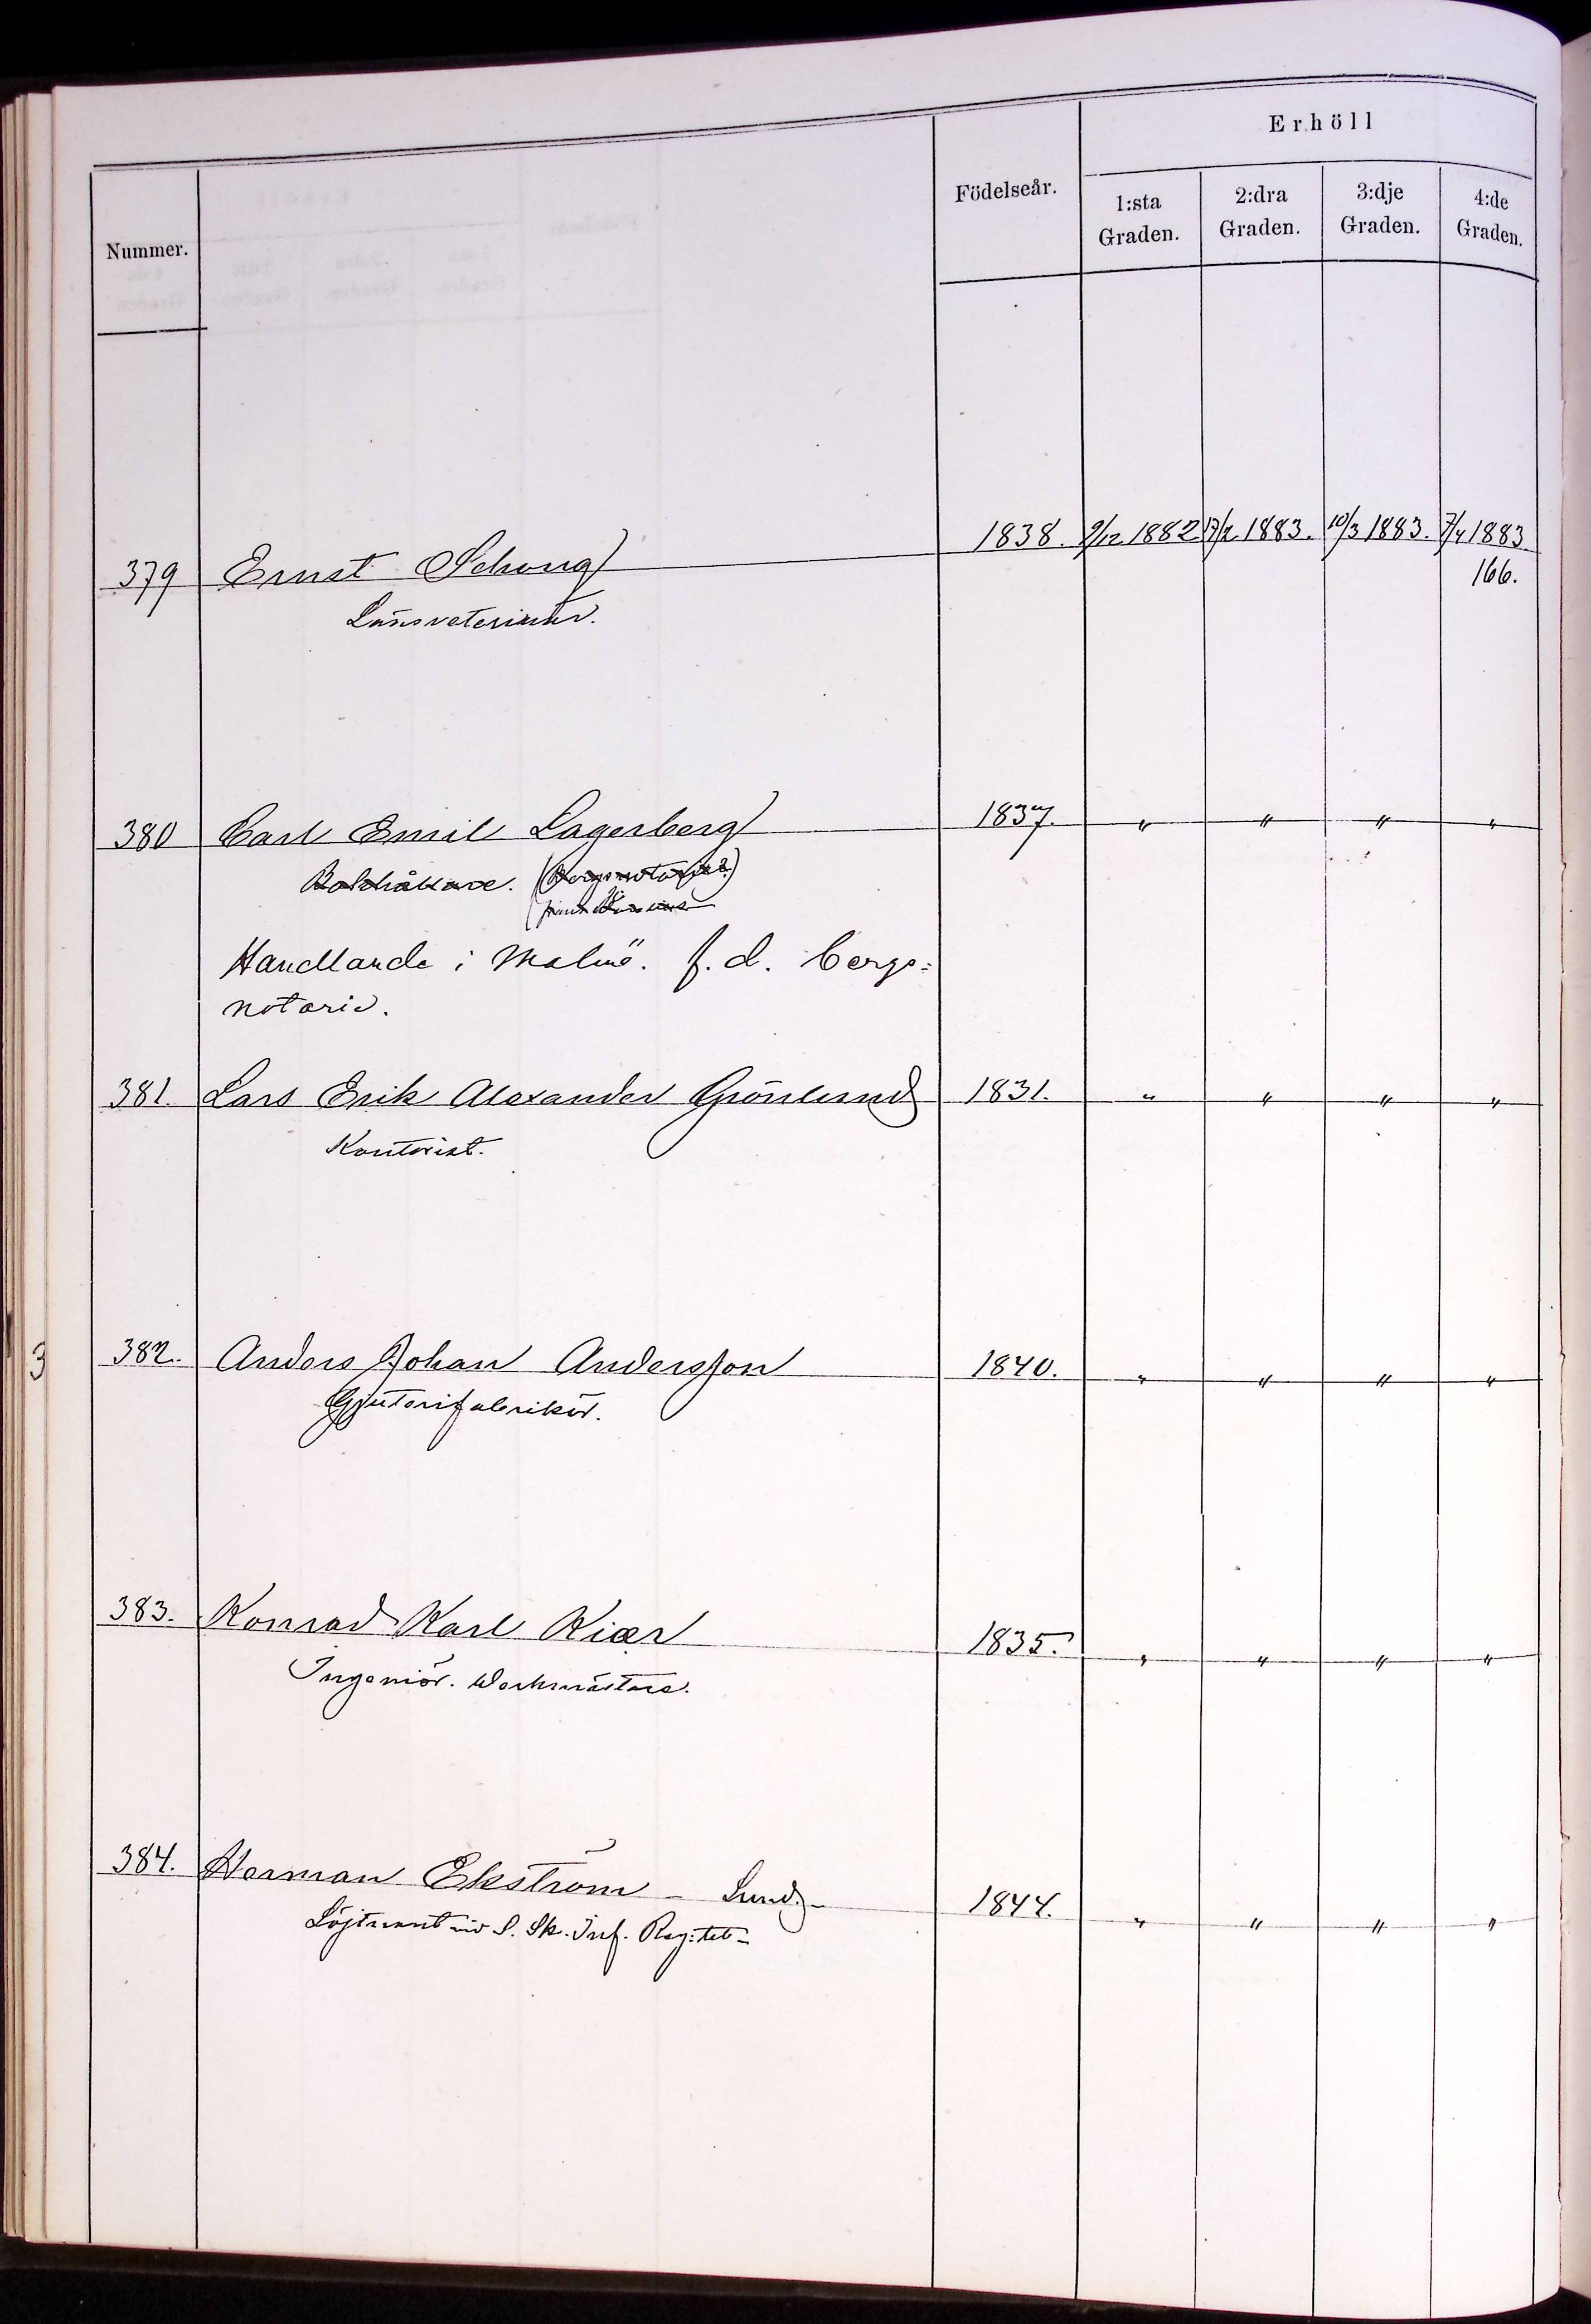 Nummer. Födelseår. Erhöll
1:sta Graden. 2:dra Graden. 3:dje Graden. 4:de Graden.
379 Ernst Schoug 1838. 9/12 1882 17/2 1883. 10/3 1883. 7/4 1883
166.
Länsveterinär.
380 Carl Emil Lagerberg 1837. " " " "
Bokhållare. (Bergsnotarie.)
Handlande i Malmö. f. d. bergs=
notarie.
381. Lars Erik Alexander Grönlund 1831. " " " "
Kontorist.
3
382. Anders Johan Andersson 1840. " " " "
Gjuterifabrikör.
383. Konrad Karl Kiær 1835. " " " "
Ingeniör. Werkmästare.
384. Herman Ekström - Lund. - 1844. " " " "
Löjtnant vid S. Sk. Inf. Reg:tet -